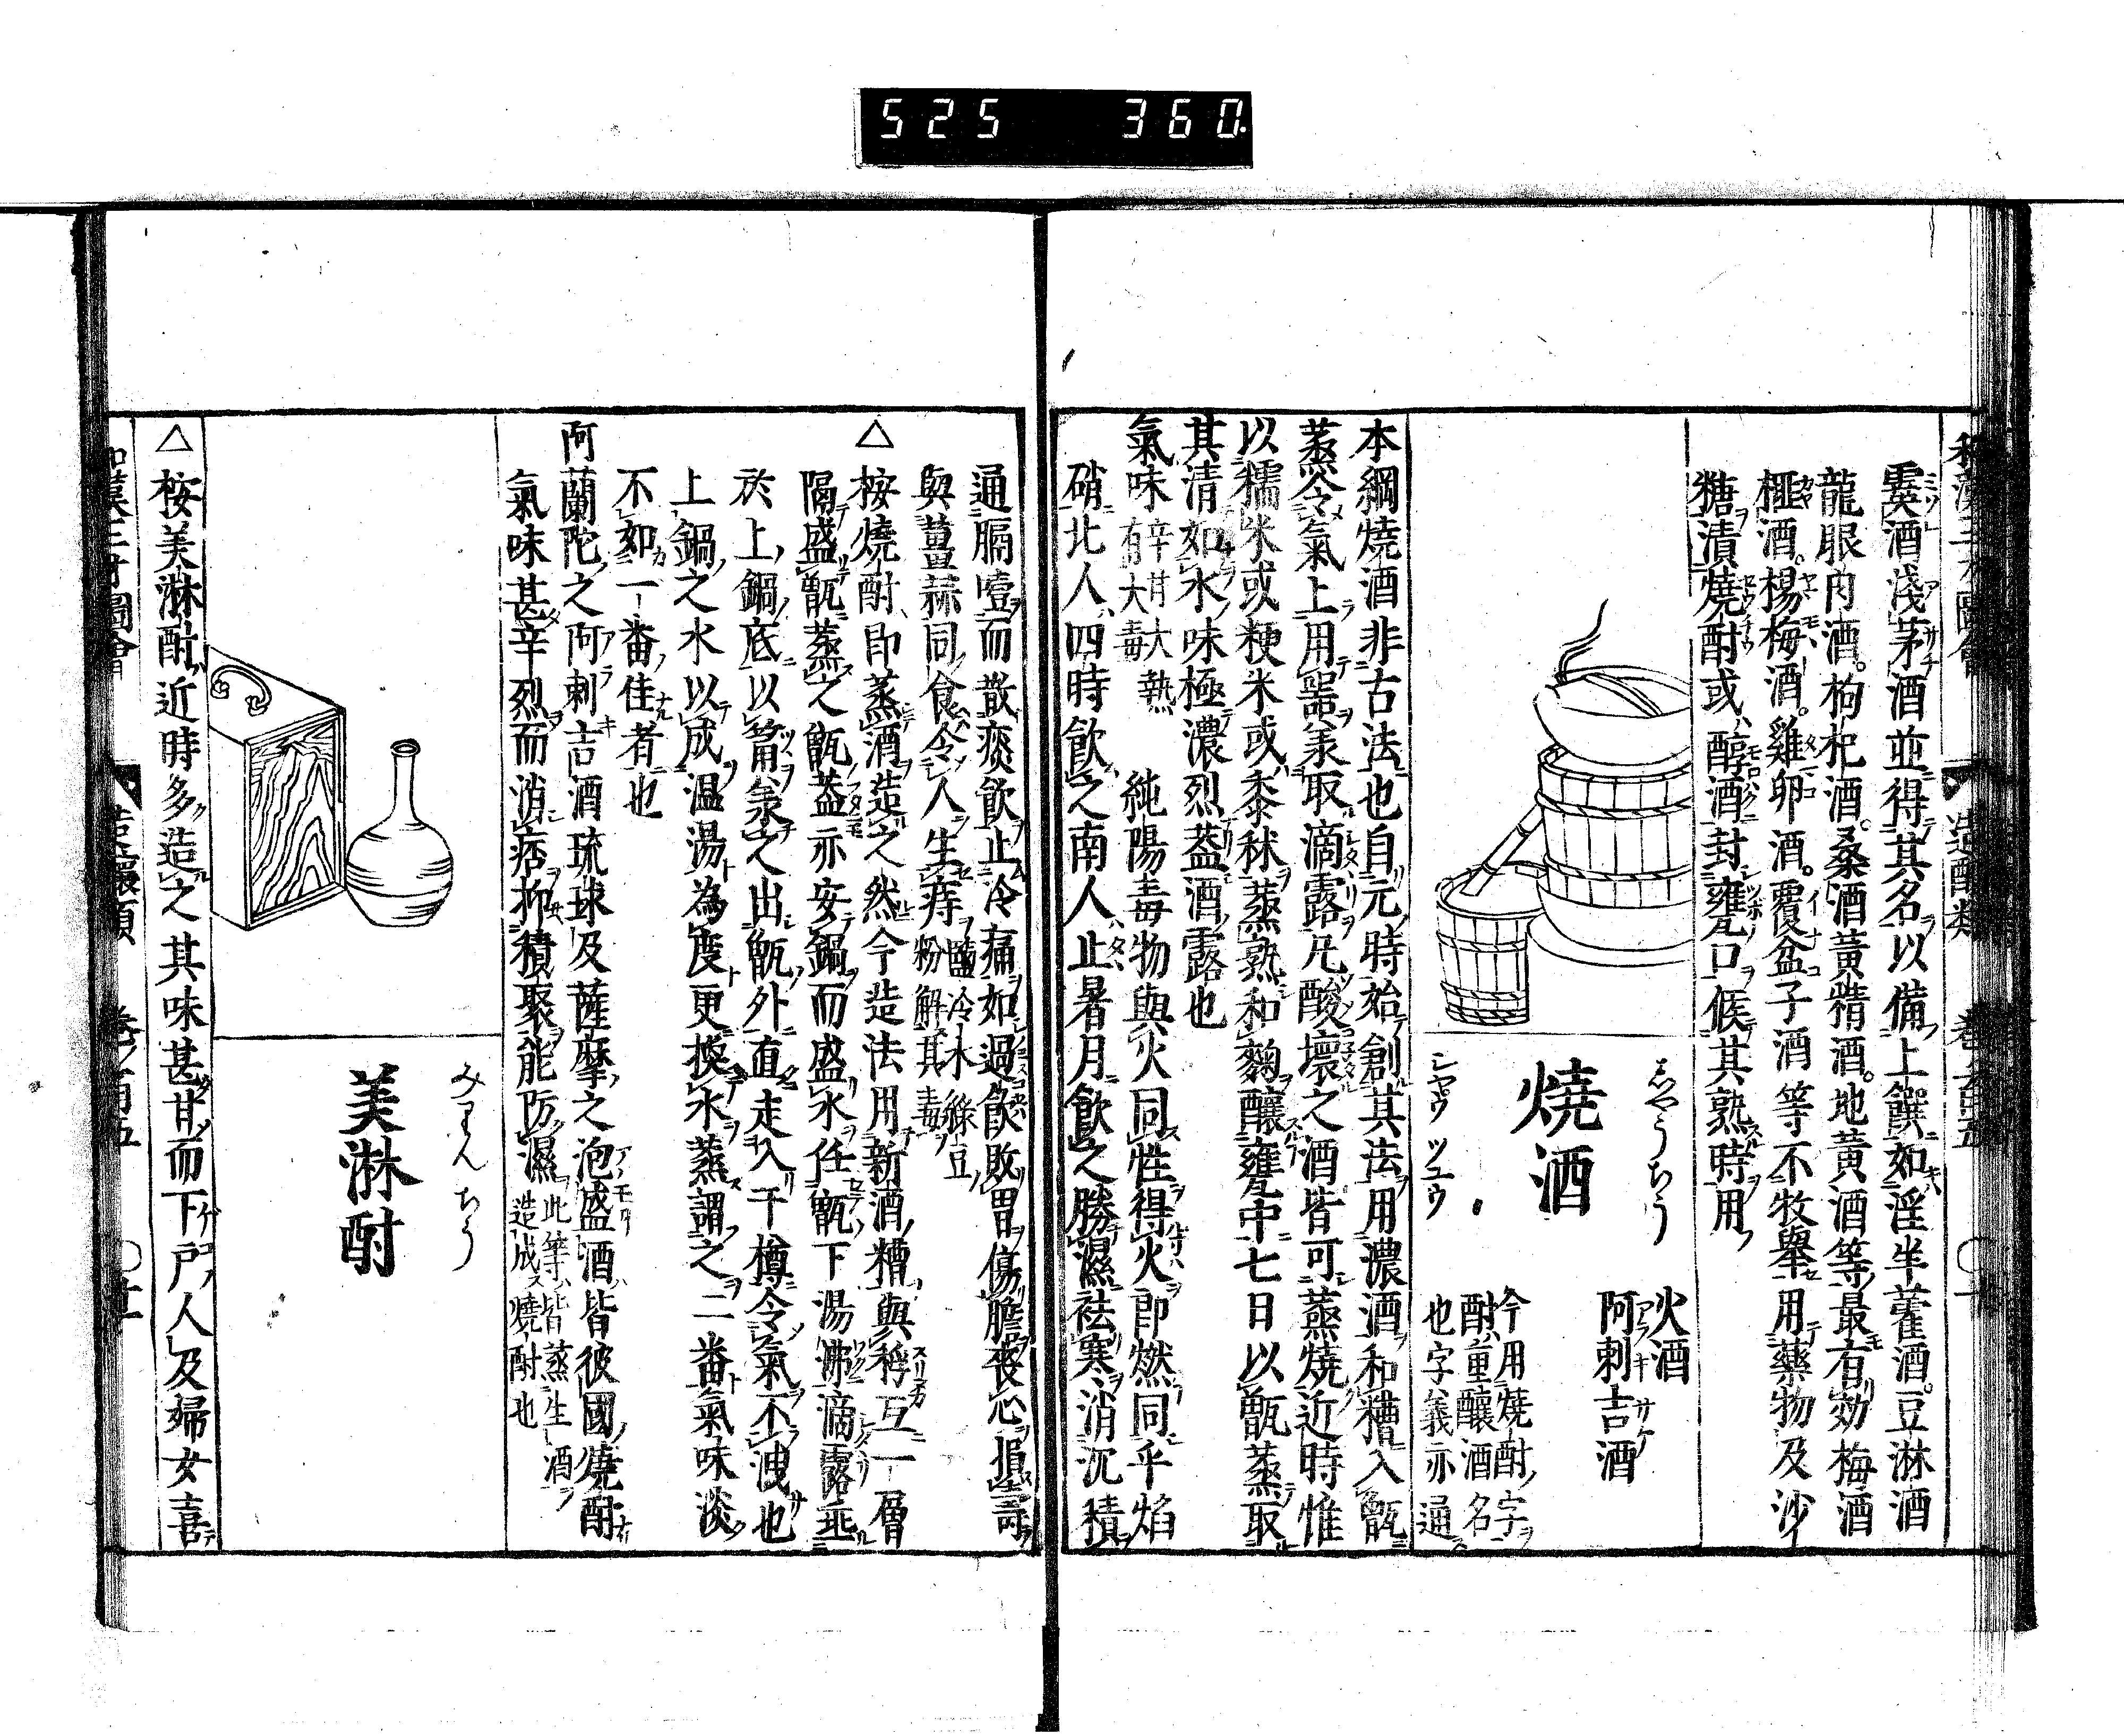 525 360
和漢三才圖會 造釀類
霙酒淺茅酒並得其名以備上饌如淫羊藿酒豆淋酒
龍眼肉酒枸杞酒桑酒黃精酒地黃酒等最有効梅酒
榧酒楊梅酒雞卵酒覆盆子酒等不牧舉用藥物及沙
糖漬燒酎或醇酒封甕口候其熟時用
しやうちう
燒酒
シヤ゜ウ ツユウ
火酒
阿刺吉酒
アラキ サケ
今用燒酎字
酎重釀酒名
也字義亦通
本綱燒酒非古法也自元時始創其法用濃酒和糟入甑
蒸令氣上用噐承取滴露凡酸壞之酒皆可蒸燒近時惟
以糯米或粳米或黍秫蒸熟和麴釀甕中七日以甑蒸取
其清如水味極濃烈蓋酒露也
氣味 辛甘大熱
有大毒
純陽毒物與火同性得火即燃同乎焰
硝北人四時飲之南人止暑月飲之勝濕祛寒消沉積
通膈噎而散痰飲止冷痛如過飲敗胃傷膽喪心損壽
與薑蒜同食令人生痔 鹽冷水綠豆
粉解其毒
△按燒酎即蒸酒造之然今造法用新酒糟與稃互一層
隔盛甑蒸之甑蓋亦安鍋而盛水任甑下湯沸滴露垂
於上鍋底以筩承之出甑外直走入于樽令氣不洩也
上鍋之水以成温湯為度更換水蒸謂之二番氣味淡
不如一番佳者也
阿蘭陀之阿刺吉酒琉球及薩摩之泡盛酒皆彼國燒酎
氣味甚辛烈而消痞抑積聚能防濕 此等皆蒸生酒
造成燒酎也
みりんちう
美淋酎
△按美淋酎近時多造之其味甚甘而下戸人及婦女喜
和漢三才圖會 造釀類 卷ノ百五